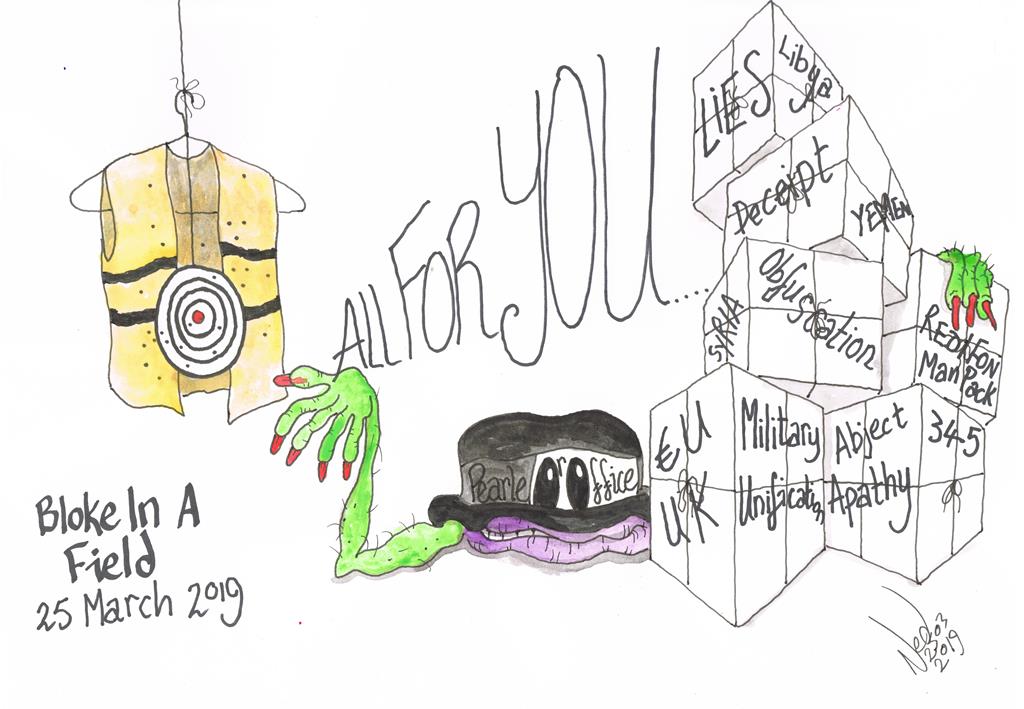 ALL FOR YOU....
LiES
Libya
Deceipt
YEMEN
SYRIA
Obfuscation
Man Pack
EU
UK
Military
Unification
Abject
Apathy
345
Pearle or office
Bloke In A
Field
25 March 2019
2019